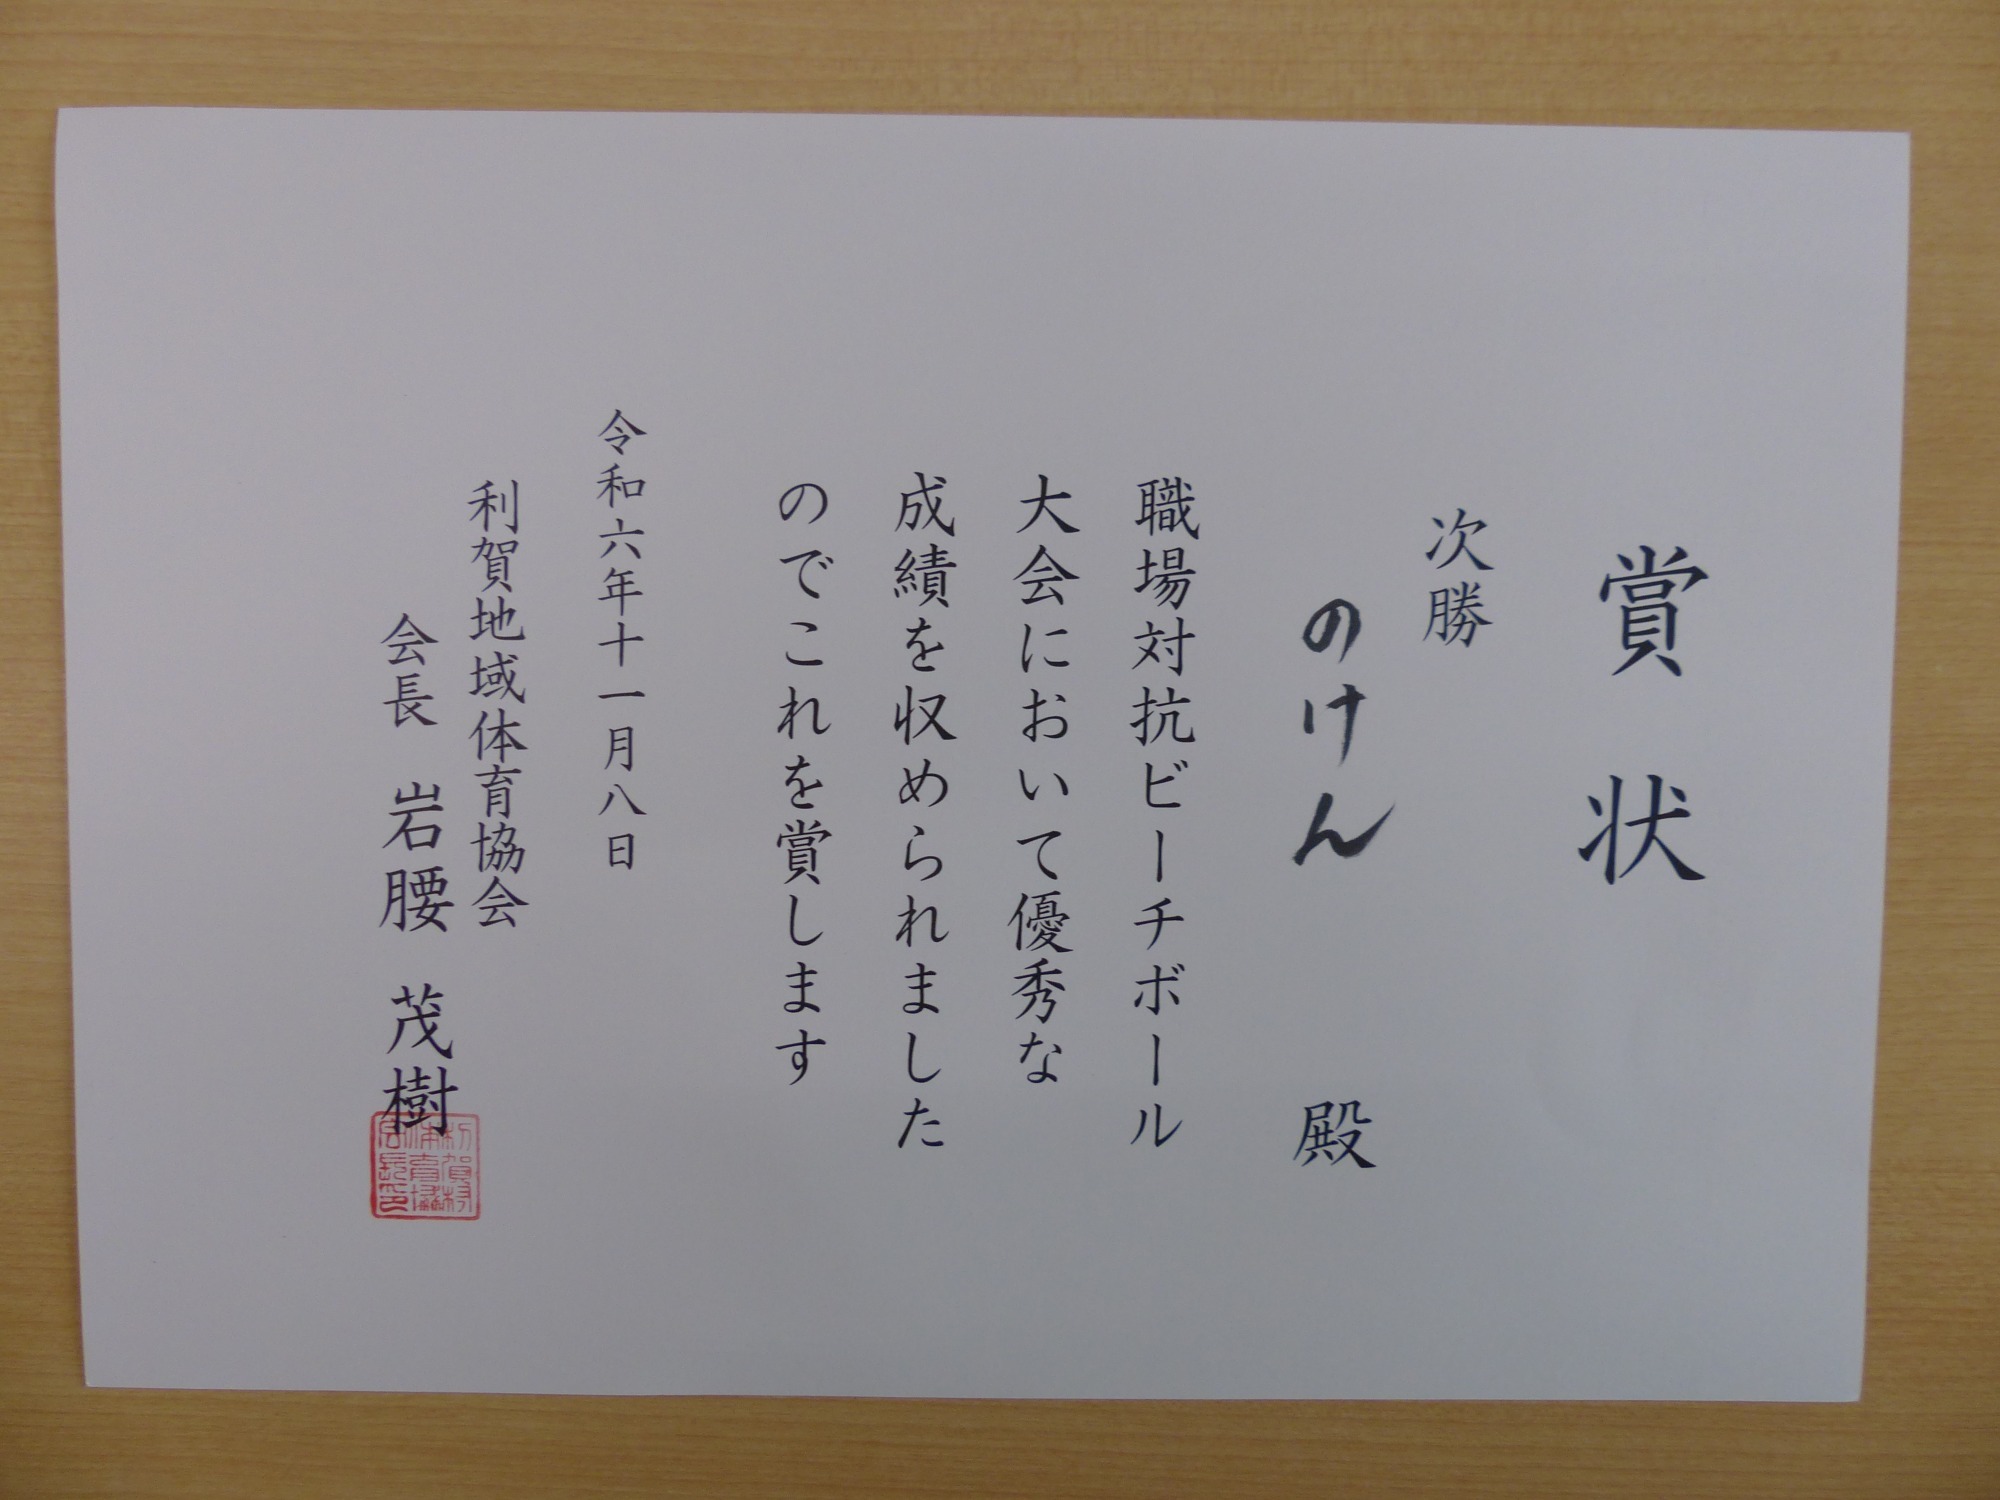 賞状
次勝
のけん 殿
職場対抗ビーチボール
大会において優秀な
成績を収められました
のでこれを賞します
令和六年十一月八日
利賀地域体育協会
会長 岩腰 茂樹
利賀村
体育協
会長印